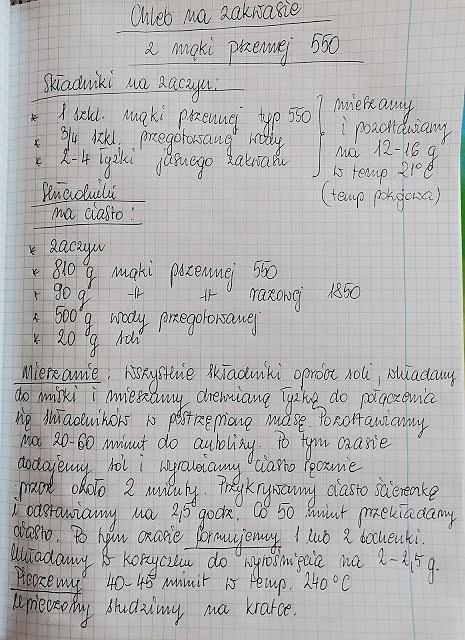 Chleb na zakwasie
z mąki pszennej 550
Składniki na zaczyn:
* 1 szkl. mąki pszennej typ 550
* 3/4 szkl. przegotowanej wody
* 2-4 łyżki jasnego zakwasu
mieszamy
i pozostawiamy
na 12-16 g
w temp 21°C
(temp pokojowa)
Składniki
na ciasto:
* zaczyn
* 810 g mąki pszennej 550
* 90 g -||- -||- razowej 1850
* 500 g wody przegotowanej
* 20 g soli
Mieszanie: Wszystkie składniki oprócz soli, wkładamy
do miski i mieszamy drewnianą łyżką do połączenia
się składników w postrzępioną masę. Pozostawiamy
na 20-60 minut do autolizy. Po tym czasie
dodajemy sól i wyrabiamy ciasto ręcznie
przez około 2 minuty. Przykrywamy ciasto ściereczką
i odstawiamy na 2,5 godz. Co 50 minut przekładamy
ciasto. Po tym czasie formujemy 1 lub 2 bochenki.
Wkładamy w koszyczek do wyrośnięcia na 2-2,5 g.
Pieczemy 40-45 minut w temp. 240°C
Upieczony studzimy na kratce.